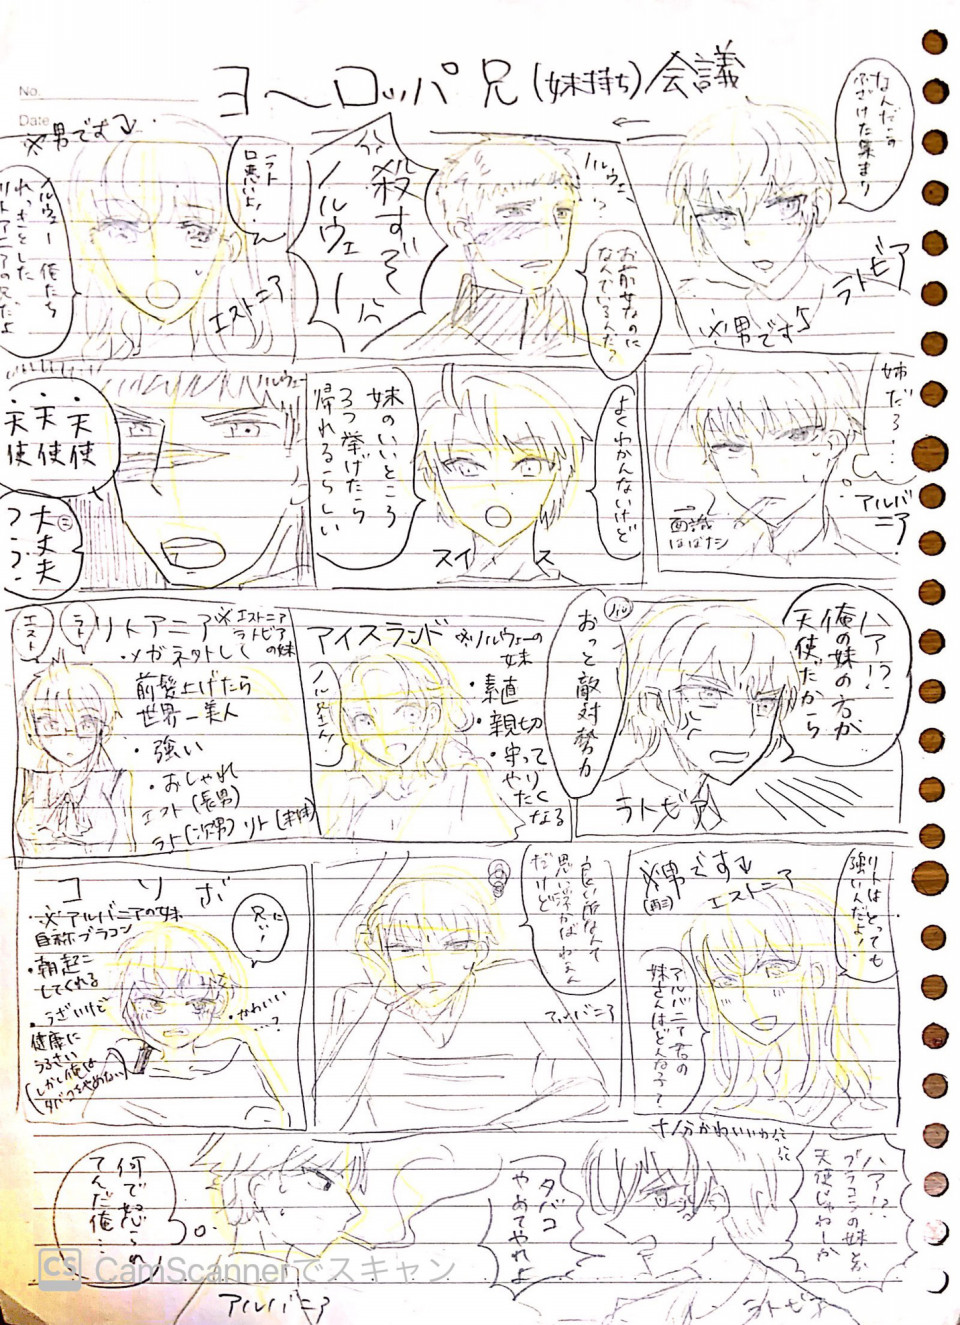 No.
Date
ヨーロッパ兄(妹持ち)会議
なんだこの
ふざけた集まり
ラトビア
※男です
ノルウェー?
お前女なのに
なんでいるんだ?
殺すぞ
ノルウェー
ラト
口悪いよ!
※男です
エストニア
ノルウェー 俺たち
れっきとした
リトアニアの兄だよ
姉だろ…
アルバニア
面識
はばたシ
よくわかんないけど
妹のいいところ
3つ挙げたら
帰れるらしい
スイス
ノルウェー
・天使
・天使
・天使
大丈夫
ハア!?
俺の妹の方が
天使だから
ラトビア
おっと敵対勢力
アイスランド
※ノルウェーの
妹
・素直
・親切
・守って
やりたく
なる
ノル兄さん!
リトアニア
※エストニア
ラトビア
の妹
・メガネっトしく
前髪上げたら
世界一美人
・強い
・おしゃれ
エスト(長男)
ラト(次男) リト(末妹)
ラト
エスト
リトはとっても
強いんだよ!
※男です
エストニア
アルバニア君の
妹さんはどんな子?
良い所なんて
思い浮かばねぇん
だけど
アルバニア
コソボ
※アルバニアの妹
自称ブラコン
・朝起こ
してくれる
・うざいけど
健康に
うるさい
(しかし俺は
タバコをやめない)
兄に!
・かわいい
…?
十分かわいいから
ハア!?
ブラコンの妹とか
天使じゃねーか
ラトビア
タバコ
やめてやれよ
何で怒られ
てんだ俺…
アルバニア
CS CamScannerでスキャン